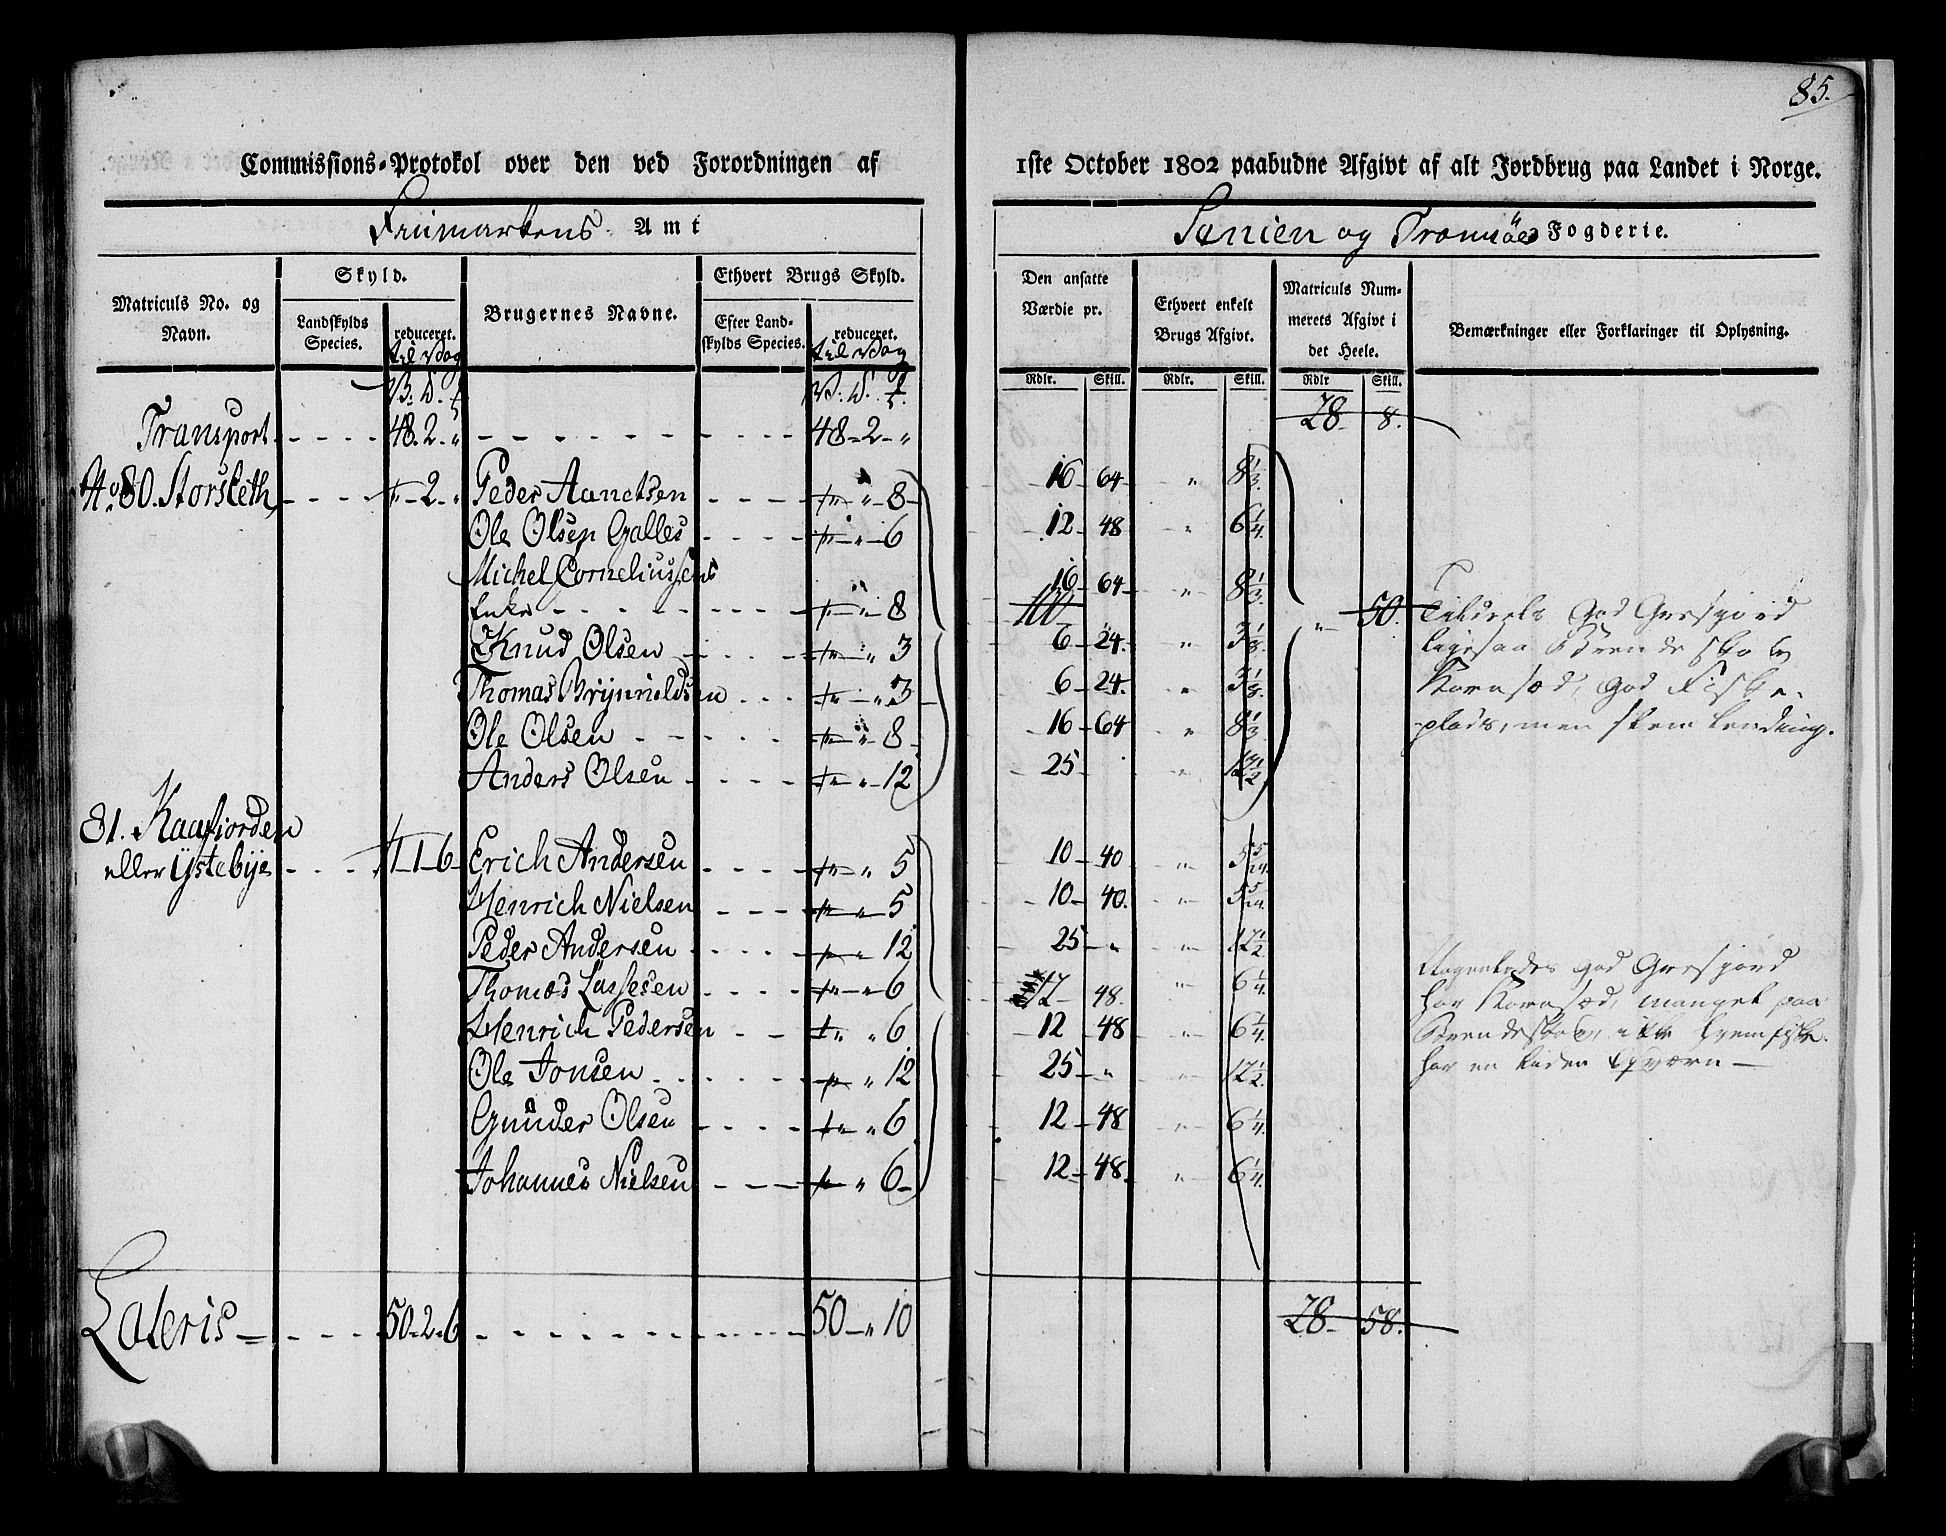 85.
Commissions-Protokol over den ved Forordningen af 1ste October 1802 paabudne Afgivt af alt Jordbrug paa Landet i Norge.
Finmarkens Amt
Senien og Tromsöes Fogderie.
Matriculs No. og Navn.
Skyld.
Landskylds Species.
reduceret. til Vog
Brugernes Navne.
Ethvert Brugs Skyld.
Efter Landskylds Species.
reduceret. til Vog
Den ansatte Værdie pr.
Ethvert enkelt Brugs Afgivt.
Matriculs Nummerets Afgivt i det Heele.
Bemærkninger eller Forklaringer til Oplysning.
Rdlr. Skill. Rdlr. Skill. Rdlr Skill.
Transport - - - - 48. 2. " - - - - 48 - 2 - " 28 8.
No. 80. Storsleth - - - 2 - " Peder Aanetsen - - - - " - 8 - 16 - 64 - " 8 1/3.
Ole Olsen Galles - - - - " - 6 12 - 48 " 6 1/4.
Michel Corneliussens
Enke - - - - " - 8 16 - 64 - " 8 1/3.
100 " 50.
Knud Olsen - - - " 3 6 - 24. " 3 1/8.
Thomas Brynnildsen - - - " 3 6 - 24. " 3 1/8.
Ole Olsen - - - - " - 8 16 - 64 " 8 1/3.
Anders Olsen - - - - " - 12 25 - " 12 1/2
Tildeels God Græsgjord
ligesaa Brendeskov
Kornsæd, god Fiske-
plads, men slem lending.
81. Kaafjorden
eller Ystebye - - - 1 - 1 - 6 - Erich Andersen - - - - " 5 10 - 40 " 5 5/24.
Henrich Nielsen - - - " 5 10 - 40. " 5 5/24.
Peder Andersen - - - - " 12 25 - " " 12 1/2.
Thomes Lassesen - - - - " 6 12 - 48. " 6 1/4.
Henrich Pedersen - - " 6 12 - 48 " 6 1/4.
Ole Jonsen - - - - " 12 25 - " " 12 1/2.
Gunder Olsen - - - - " 6 12 - 48 " 6 1/4.
Johannes Nielsen - - - " 6 - 12 - 48. " 6 1/4.
Nogenledes god Græsgjord
har Kornsæd, mangel paa
Brendeskov,
har en liden Qværn —
Lateris - - - - 50 - 2 - 6 - - - - 50 - " 10 28 - 58.